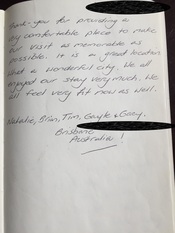 Thank-you for providing a
very comfortable place to make
our visit as memorable as
possible. It is a great location
What a wonderful city. We all
enjoyed our stay very much. We
all feel very fit now as well.
Natalie, Brian, Tim, Gayle & Gary.
Brisbane
Australia!